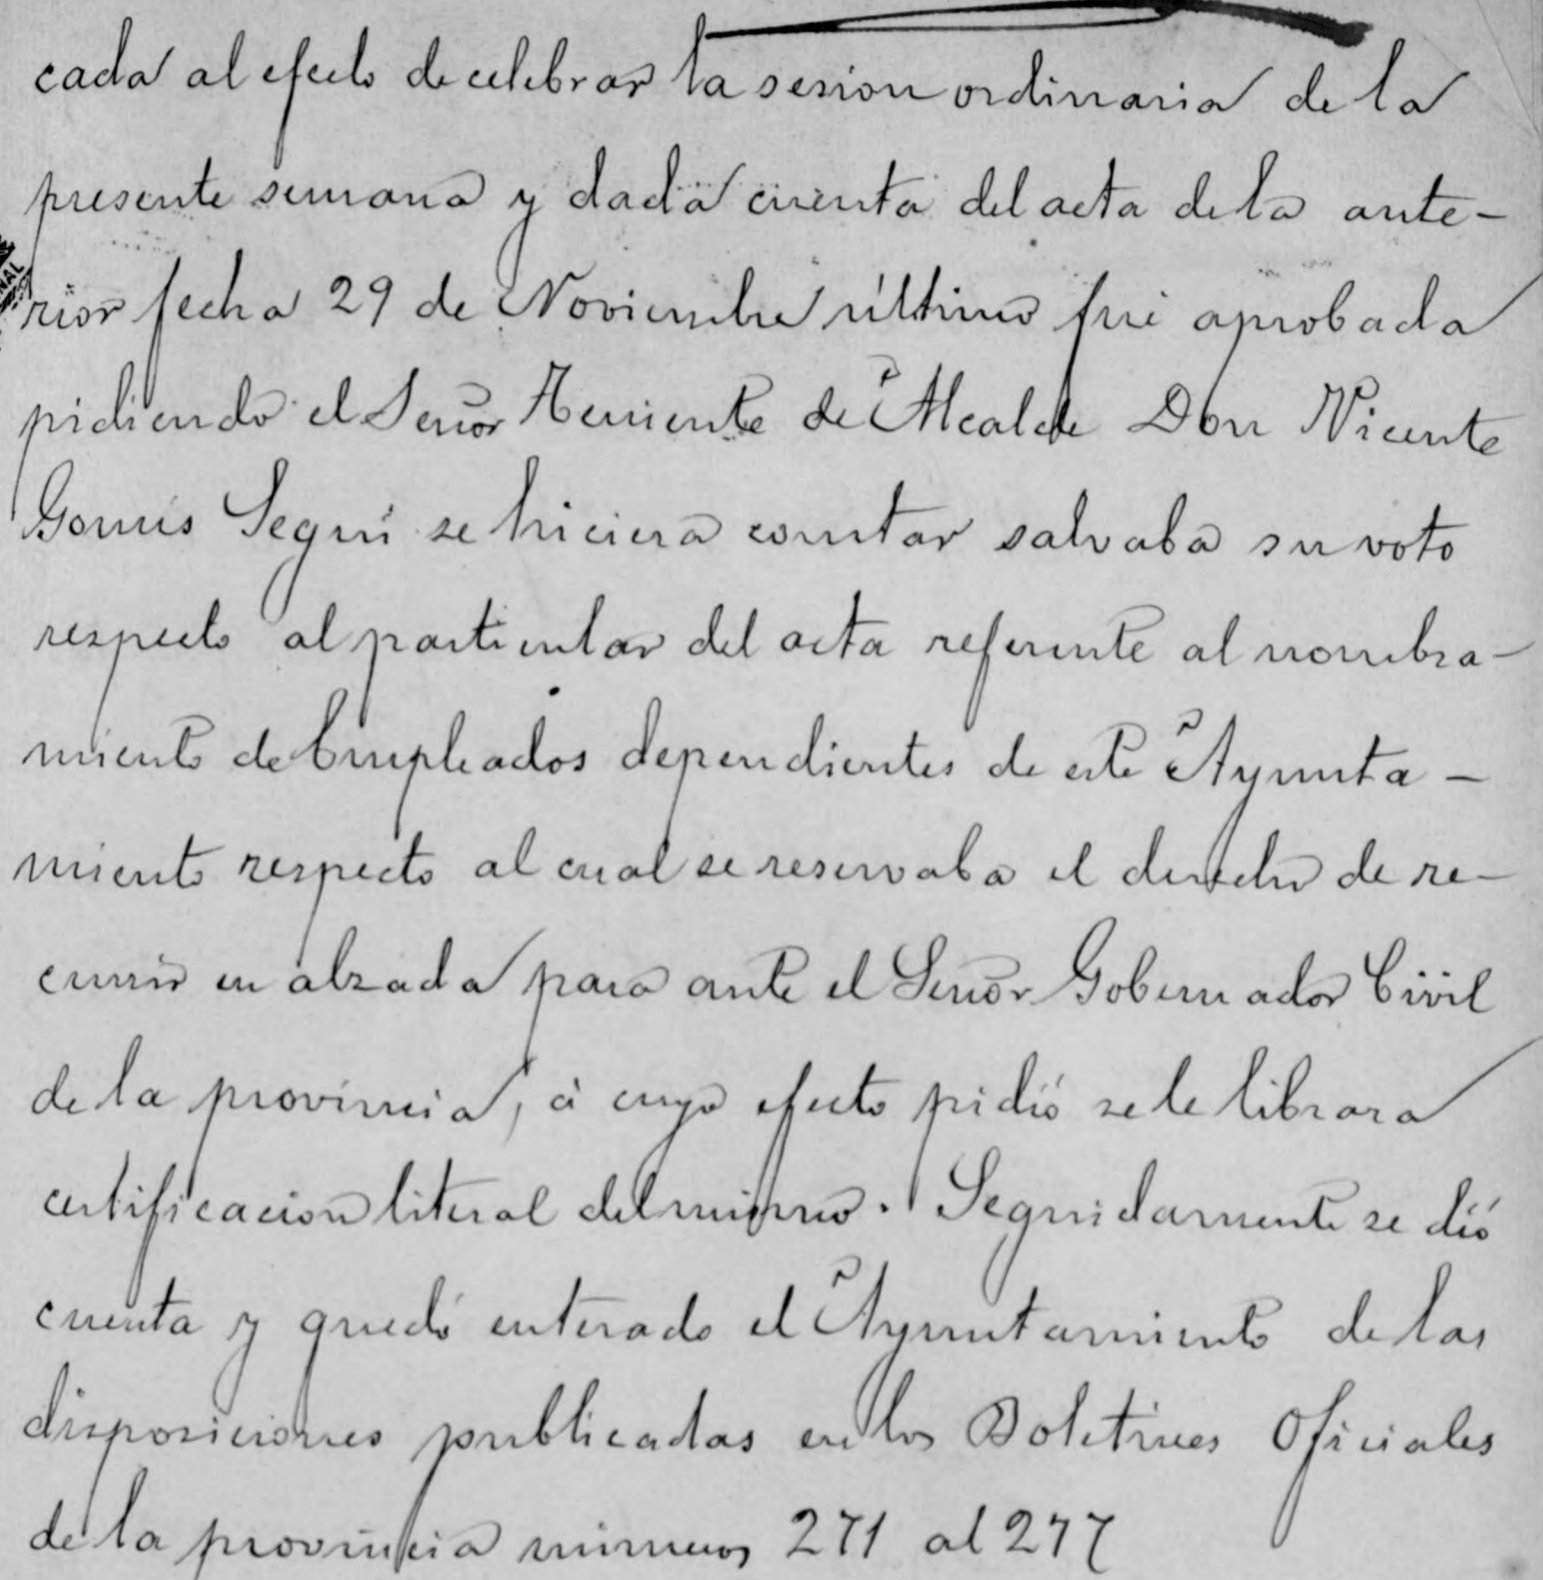 cada al efecto de celebrar la sesion ordinaria de la
presente semana y dada cuenta del acta de la ante-
rior fecha 29 de Noviembre último fué aprobada
pidiendo el Señor Teniente de Alcalde Don Vicente
Gomis Seguí se hiciera constar salvaba su voto
respecto al particular del acta referente al nombra-
miento de Empleados dependientes de este Ayunta-
miento respecto al cual se reservaba el derecho de re-
currir en alzada para ante el Señor Gobernador Civil
de la provincia, á cuyo efecto pidió se le librara
certificacion literal del mismo. Seguidamente se dió
cuenta y quedó enterado el Ayuntamiento de las
disposiciones publicadas en los Boletines Oficiales
de la provincia numeros 271 al 277